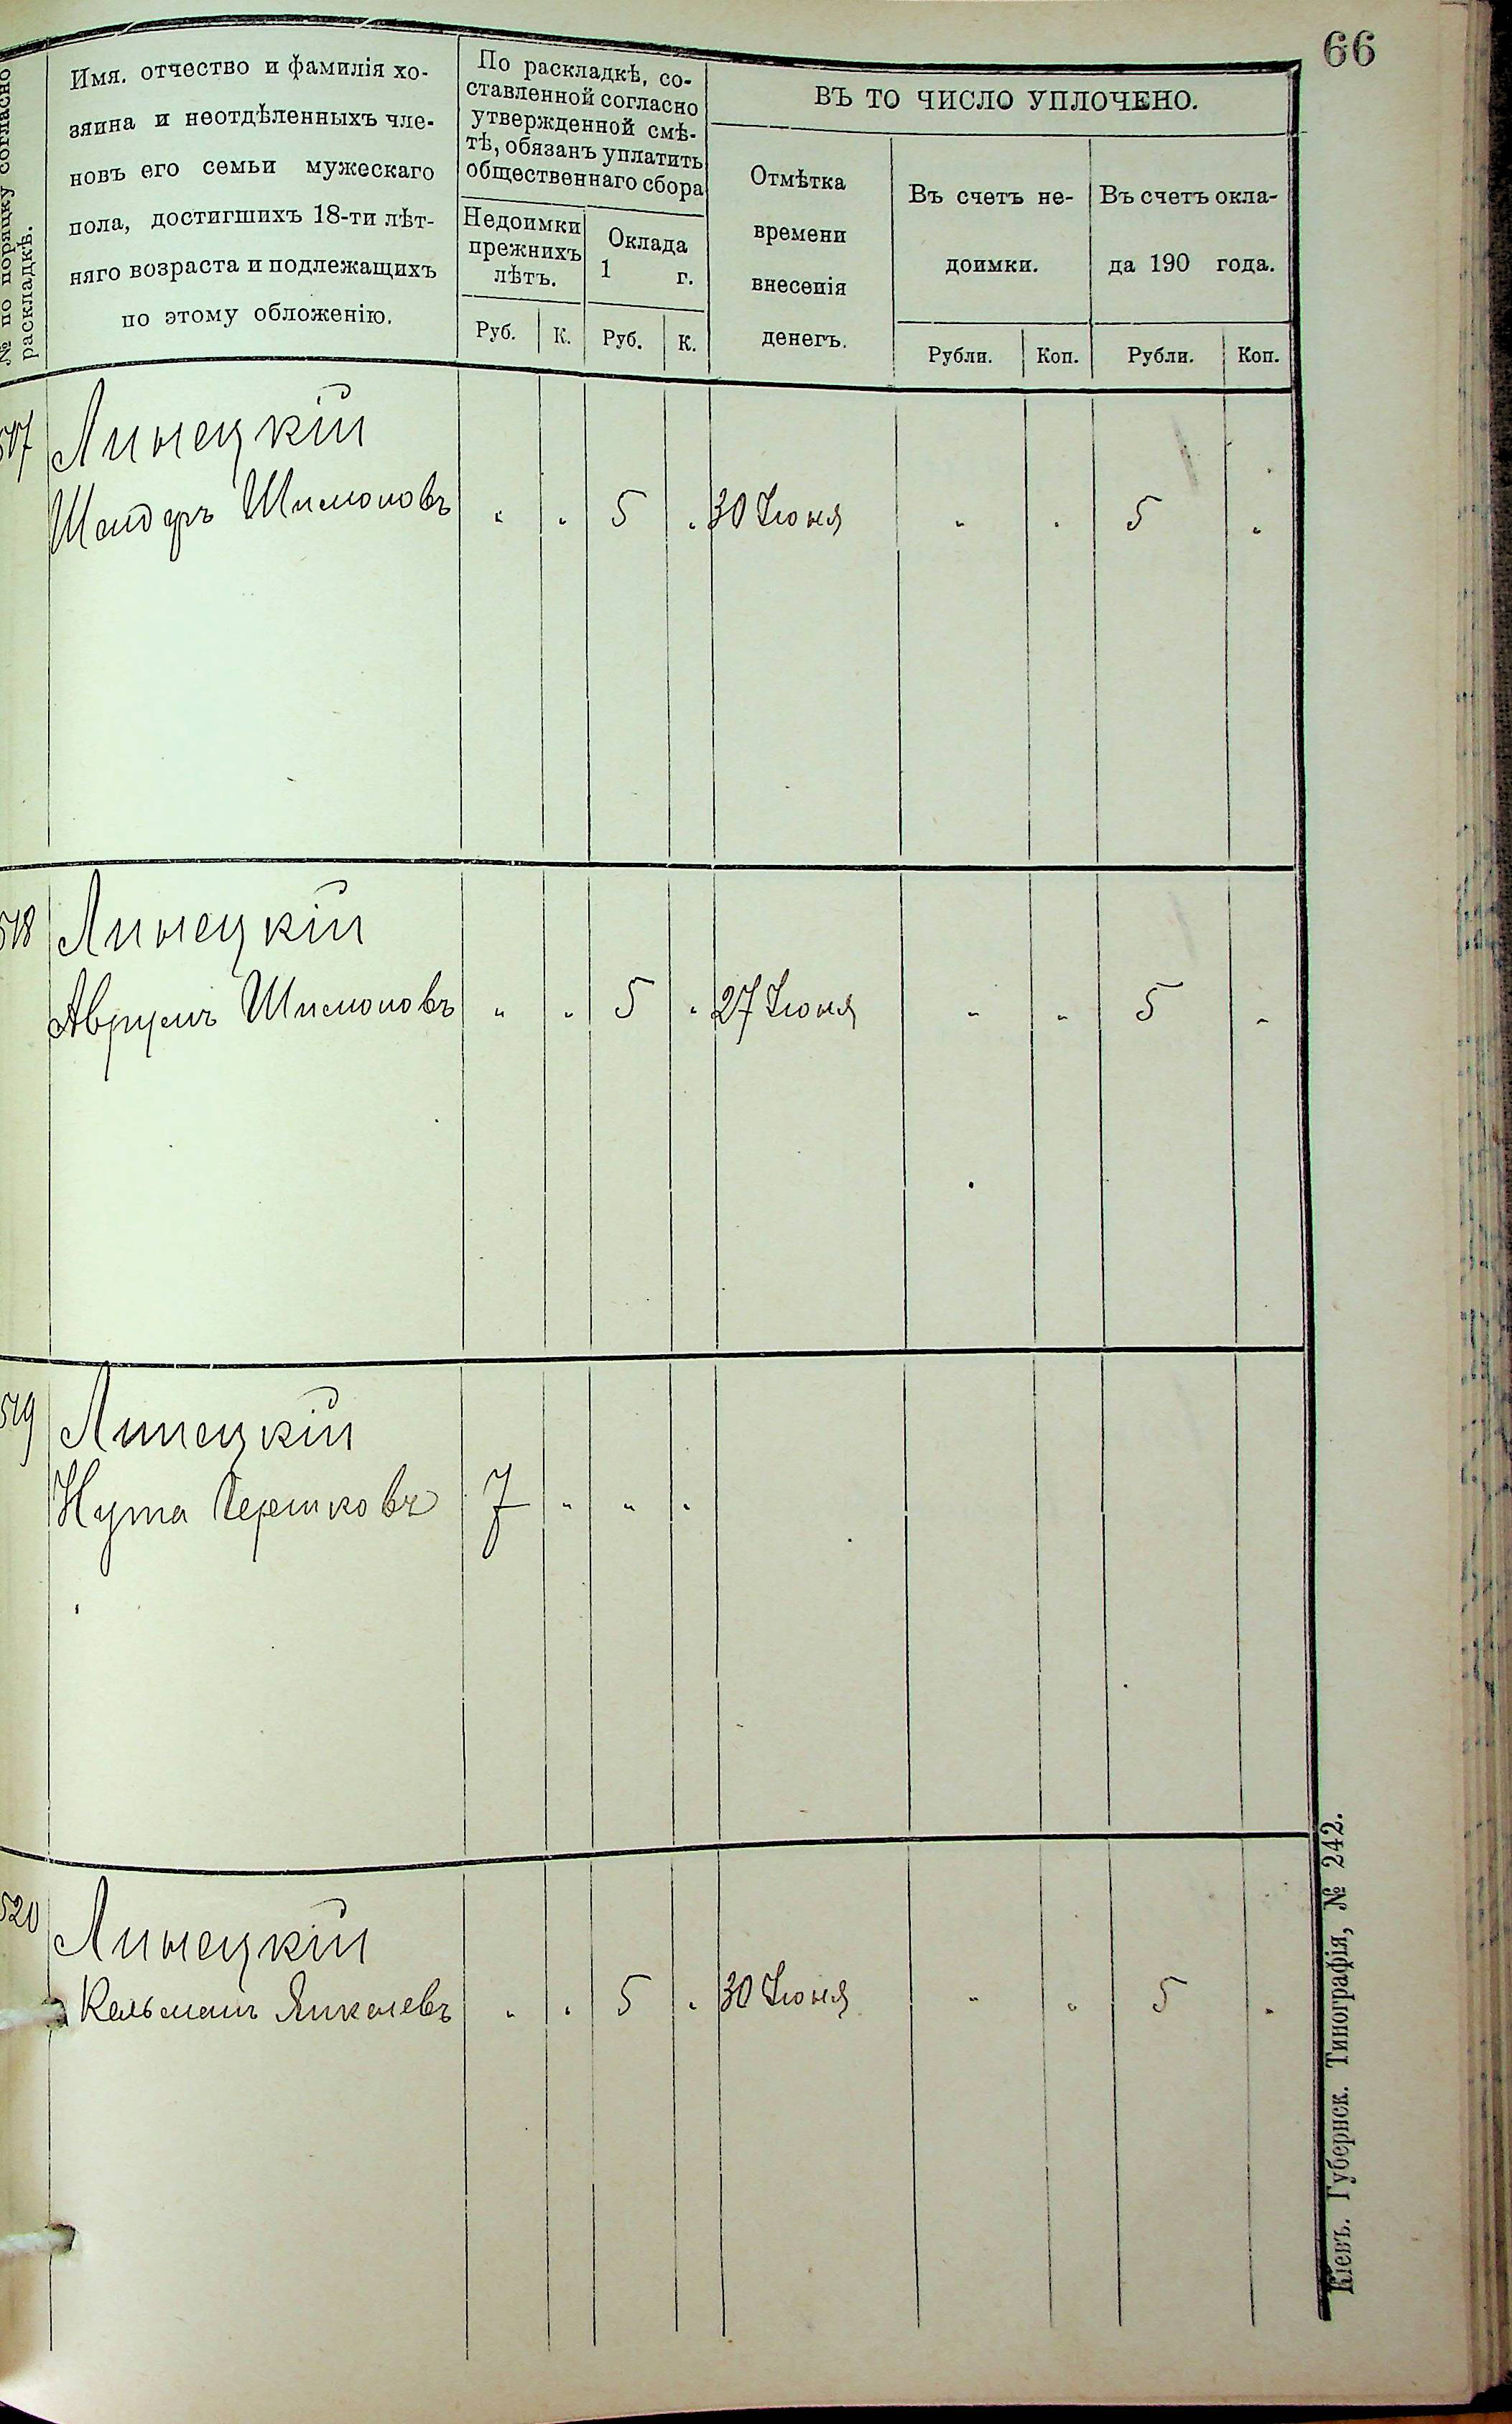 66
№ по порядку согласно
раскладкѣ.
Имя, отчество и фамилія хо-
зяина и неотдѣленныхъ чле-
новъ его семьи мужескаго
пола, достигшихъ 18-ти лѣт-
няго возраста и подлежащихъ
по этому обложенію.
По раскладкѣ, со-
ставленной согласно
утвержденной смѣ-
тѣ, обязанъ уплатить
общественнаго сбора
Недоимки
прежнихъ
лѣтъ.
Оклада
1 г.
Руб. К. Руб. К.
ВЪ ТО ЧИСЛО УПЛОЧЕНО.
Отмѣтка
времени
внесенія
денегъ.
Въ счетъ не-
доимки.
Въ счетъ окла-
да 190 года.
Рубли. Коп. Рубли. Коп.
517 Линецкій
Шендеръ Шимоновъ " " 5 " 30 Іюня " " 5 "
518 Линецкій
Аврумъ Шимоновъ " " 5 " 27 Іюня " " 5 "
519 Линецкій
Нута Гершковъ 7 " " "
520 Линецкій
Кельманъ Янкелевъ " " 5 " 30 Іюня " " 5 "
Кіевъ. Губернск. Типографія, № 242.